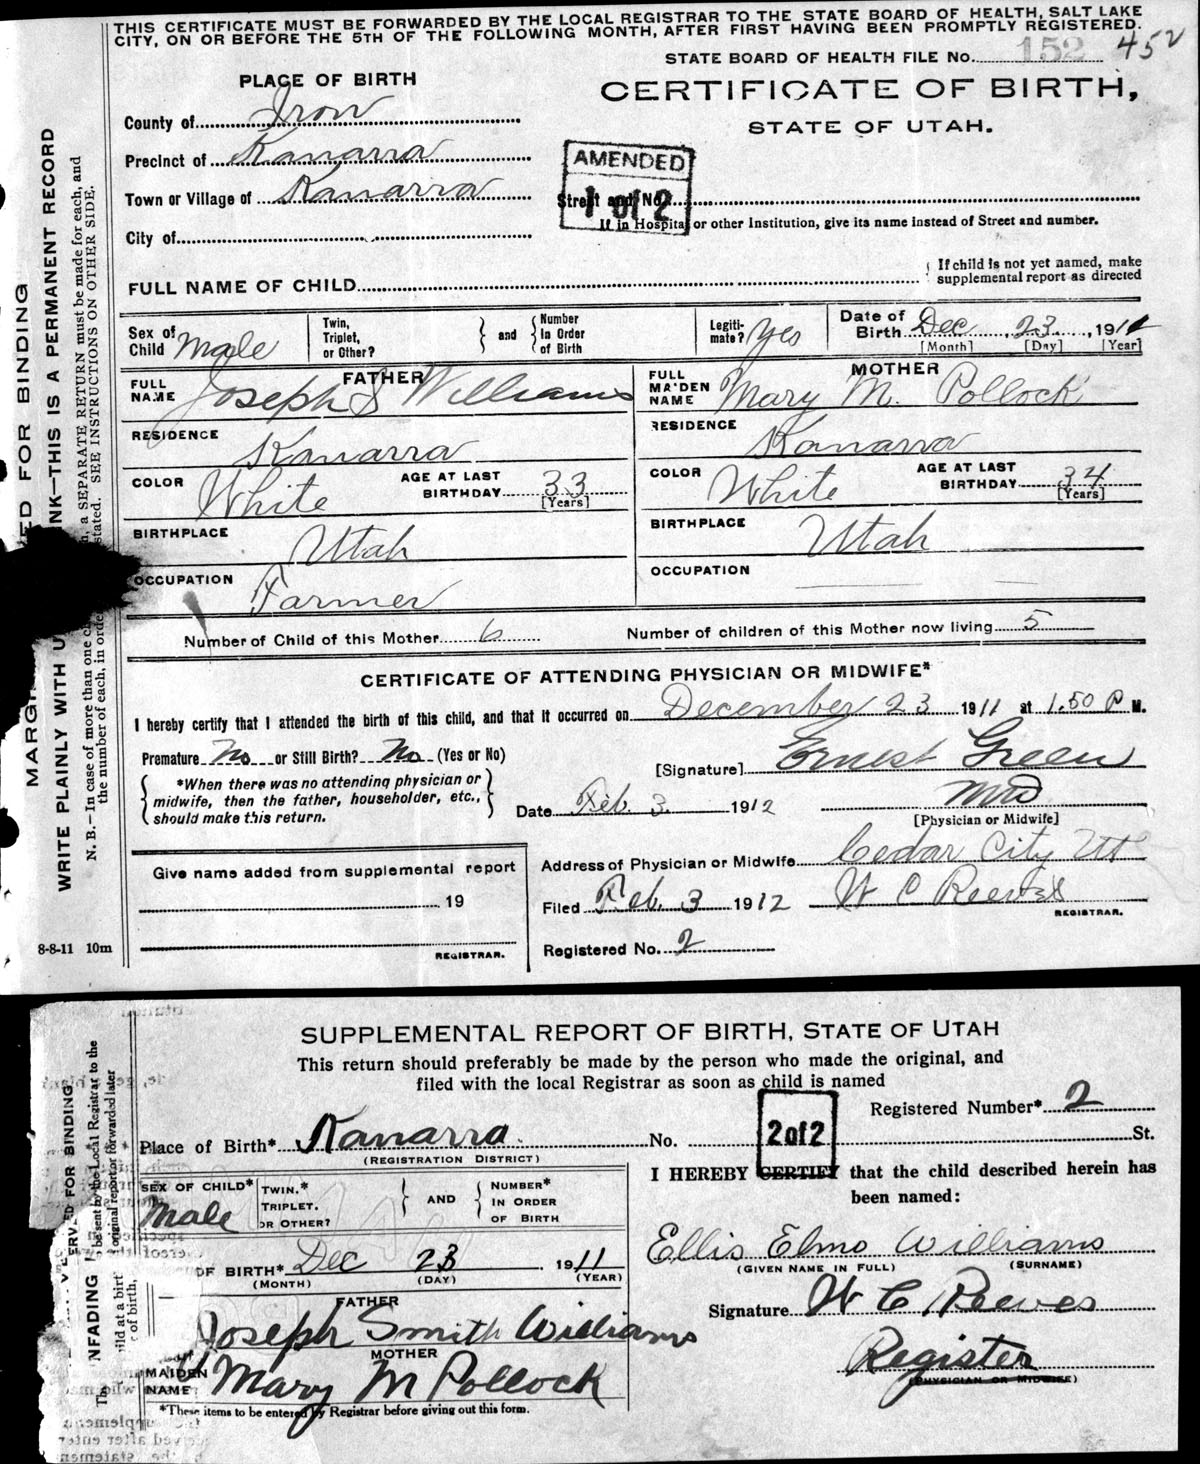 THIS CERTIFICATE MUST BE FORWARDED BY THE LOCAL REGISTRAR TO THE STATE BOARD OF HEALTH, SALT LAKE
CITY, ON OR BEFORE THE 5TH OF THE FOLLOWING MONTH, AFTER FIRST HAVING BEEN PROMPTLY REGISTERED.
STATE BOARD OF HEALTH FILE No. 152 452
PLACE OF BIRTH
CERTIFICATE OF BIRTH,
STATE OF UTAH.
County of Iron
Precinct of Kanarra
Town or Village of Kanarra
City of
AMENDED
1 of 2
Street and No.
If in Hospital or other Institution, give its name instead of Street and number.
FULL NAME OF CHILD
If child is not yet named, make
supplemental report as directed
Sex of Child Male
Twin, Triplet, or Other?
and
Number In Order of Birth
Legiti-mate? Yes
Date of Birth Dec 23, 1911
[Month] [Day] [Year]
FATHER
FULL NAME Joseph S Williams
MOTHER
FULL MAIDEN NAME Mary M. Pollock
RESIDENCE Kanarra
RESIDENCE Kanarra
COLOR White
AGE AT LAST BIRTHDAY 33
[Years]
COLOR White
AGE AT LAST BIRTHDAY 34
[Years]
BIRTHPLACE Utah
BIRTHPLACE Utah
OCCUPATION Farmer
OCCUPATION
Number of Child of this Mother 6
Number of children of this Mother now living 5
CERTIFICATE OF ATTENDING PHYSICIAN OR MIDWIFE*
I hereby certify that I attended the birth of this child, and that it occurred on December 23 1911 at 1.50 P M.
Premature No or Still Birth? No (Yes or No)
[Signature] Ernest Green
*When there was no attending physician or
midwife, then the father, householder, etc.,
should make this return.
Date Feb. 3 1912
MD
[Physician or Midwife]
Address of Physician or Midwife Cedar City Ut
Give name added from supplemental report
19
REGISTRAR.
Filed Feb. 3 1912 W C Reeves
REGISTRAR.
Registered No. 2
8-8-11 10m
WRITE PLAINLY WITH U
NK—THIS IS A PERMANENT RECORD
MARGI
ED FOR BINDING
N. B.—In case of more than one c
a SEPARATE RETURN must be made for each, and
the number of each, in orde
stated. SEE INSTRUCTIONS ON OTHER SIDE.
SUPPLEMENTAL REPORT OF BIRTH, STATE OF UTAH
This return should preferably be made by the person who made the original, and
filed with the local Registrar as soon as child is named
Registered Number* 2
Place of Birth* Kanarra
(REGISTRATION DISTRICT)
No. St.
2 of 2
SEX OF CHILD* Male
TWIN.* TRIPLET. OR OTHER?
AND
NUMBER* IN ORDER OF BIRTH
I HEREBY CERTIFY that the child described herein has
been named:
OF BIRTH* Dec 23, 1911
(MONTH) (DAY) (YEAR)
Ellis Elmo Williams
(GIVEN NAME IN FULL) (SURNAME)
FATHER
Joseph Smith Williams
Signature W C Reeves
MOTHER
MAIDEN NAME* Mary M Pollock
Register
(PHYSICIAN OR MIDWIFE)
*These items to be entered by Registrar before giving out this form.
ERVED FOR BINDING
NFADING
be sent by the Local Registrar to the
original report or forwarded later